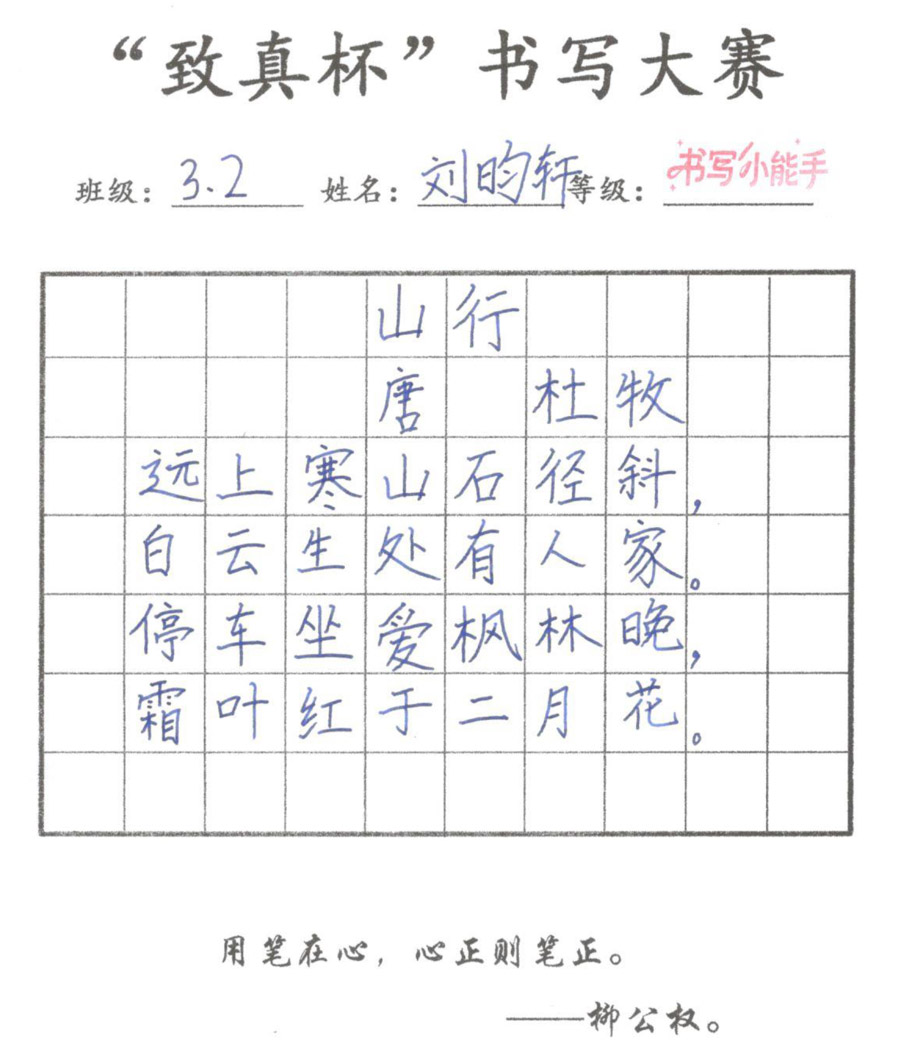 “致真杯”书写大赛
班级：3.2 姓名：刘昀轩 等级：书写小能手
山行
唐 杜牧
远上寒山石径斜，
白云生处有人家。
停车坐爱枫林晚，
霜叶红于二月花。
用笔在心，心正则笔正。
——柳公权。